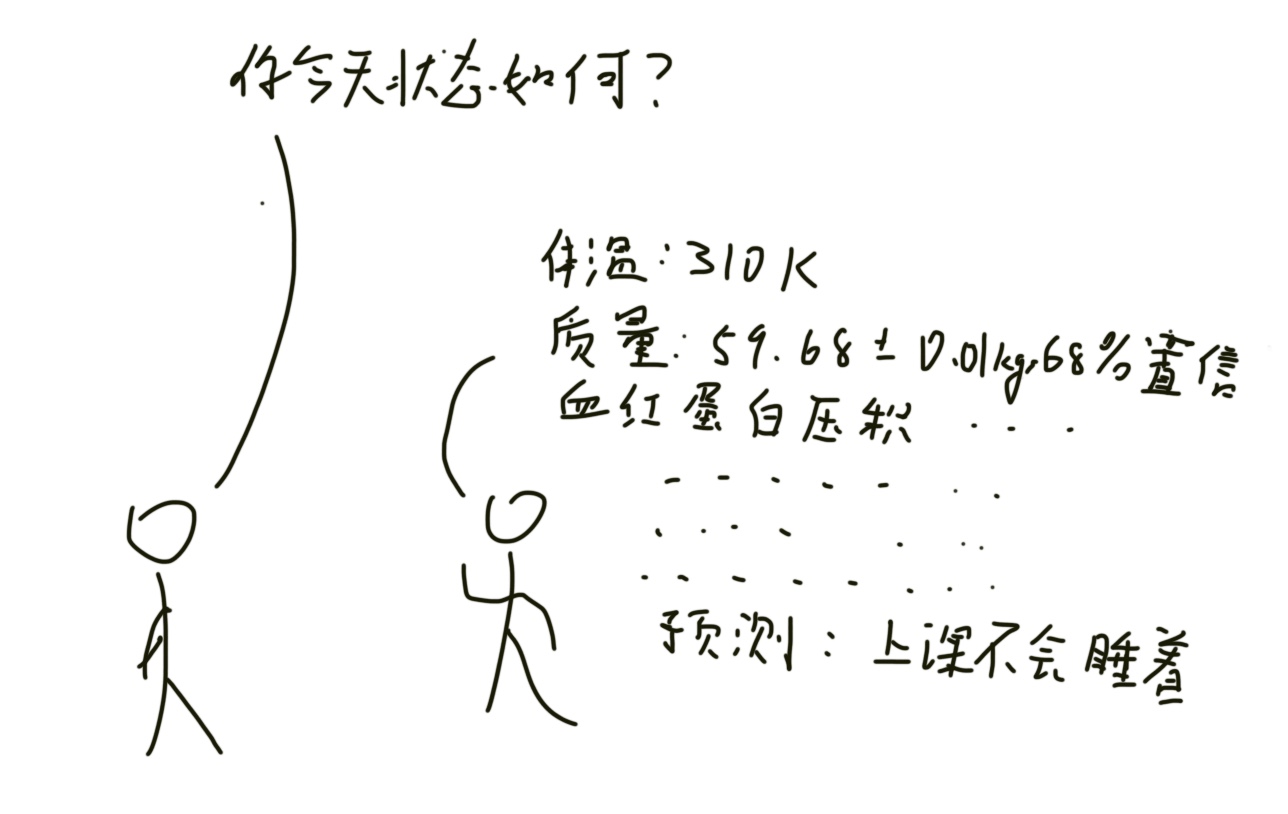 你今天状态如何？
体温：310K
质量：59.68±0.01kg,68%置信
血红蛋白压积 ...
预测：上课不会睡着